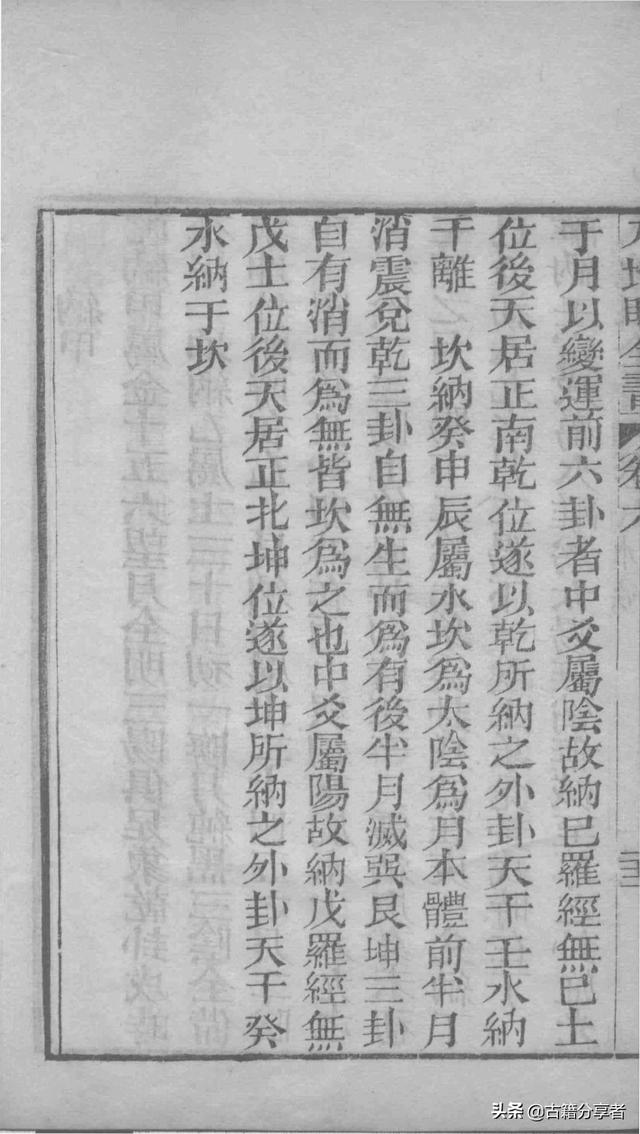 卷六
于月以變運前六卦者中爻屬陰故納巳羅經無巳土
位後天居正南乾位遂以乾所納之外卦天干壬水納
干離　坎納癸申辰屬水坎為太陰為月本體前半月
消震兌乾三卦自無生而為有後半月滅巽艮坤三卦
自有消而為無皆坎為之也中爻屬陽故納戊羅經無
戊土位後天居正北坤位遂以坤所納之外卦天干癸
水納于坎
头条 @古籍分享者